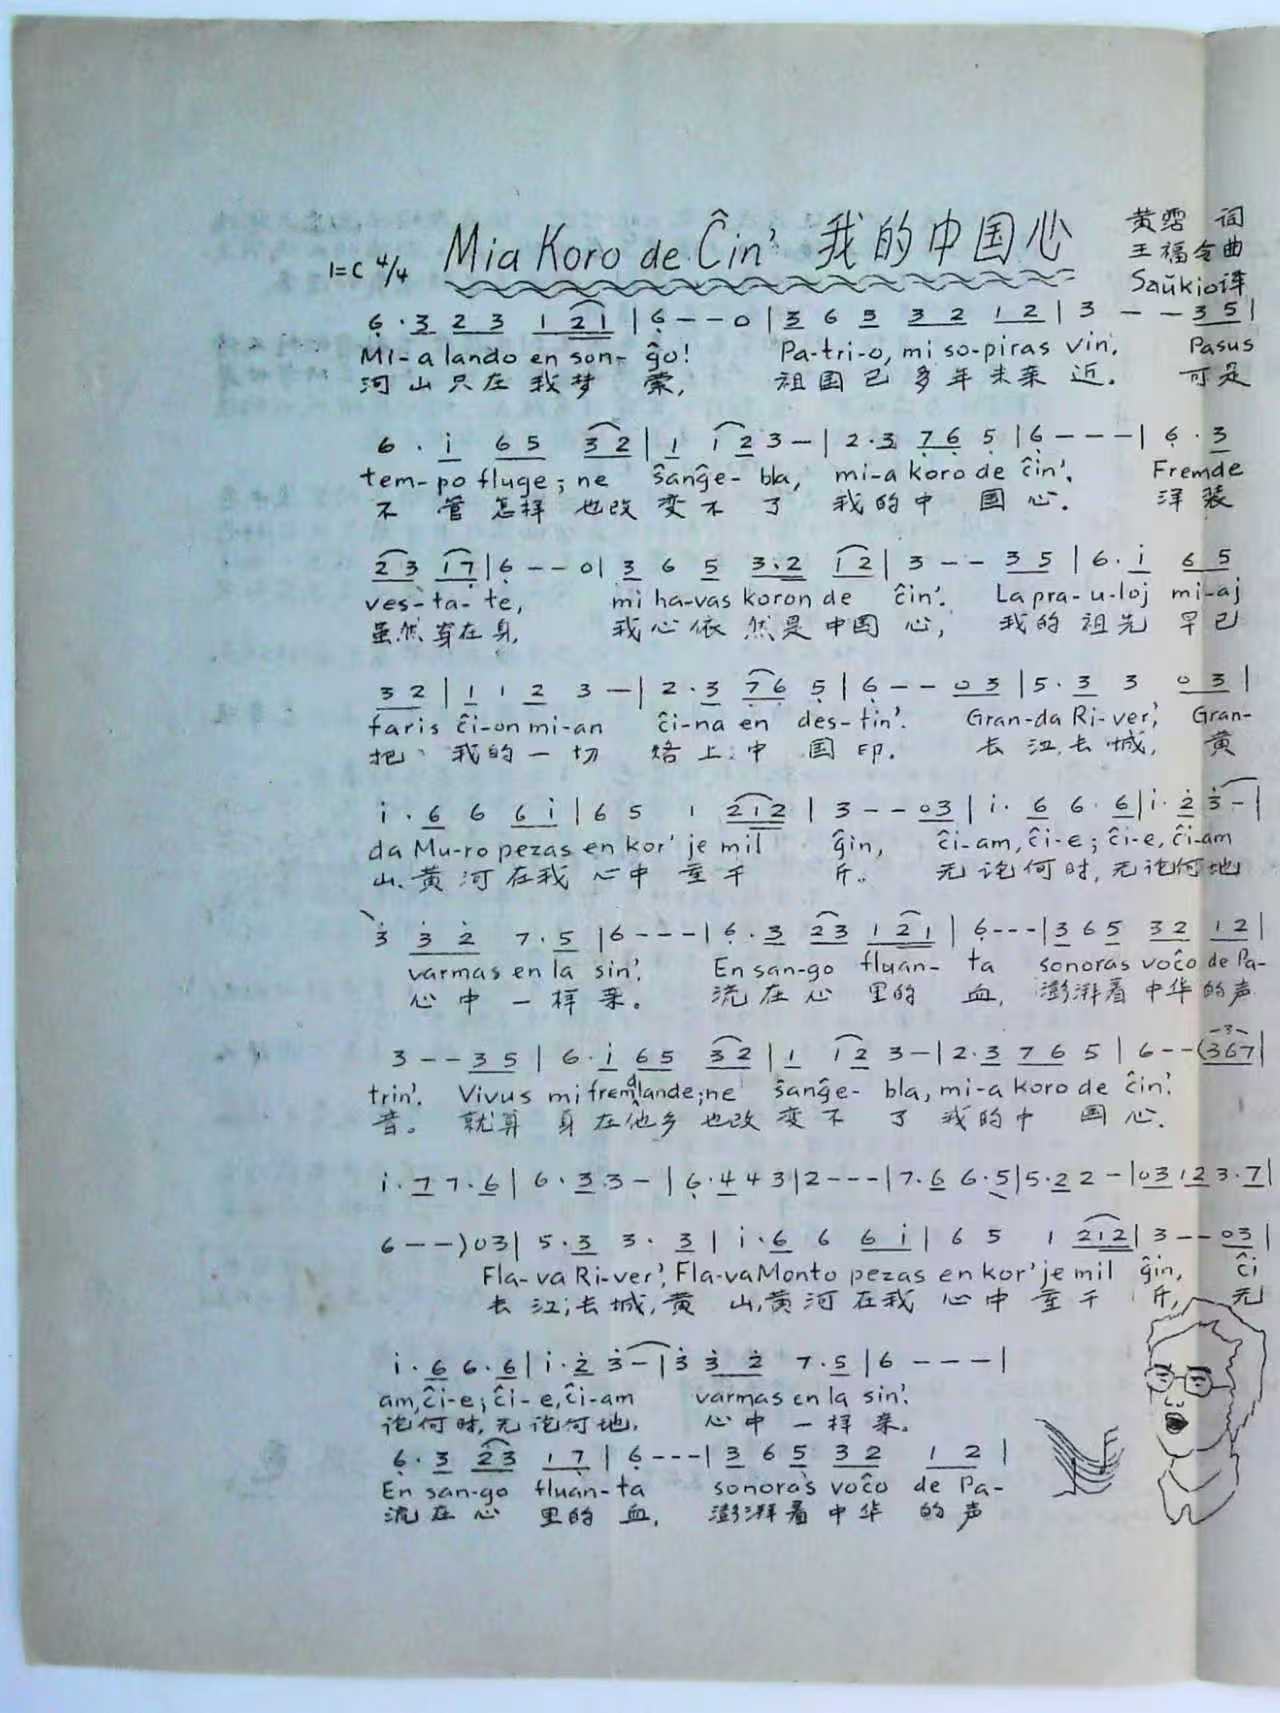 Mia Koro de Ĉin' 我的中国心
黄霑 词
王福令曲
Saŭkio译
1=C 4/4
6̣·3 2 3 1 2 1 | 6̣ - - 0 | 3 6 5 3 2 1 2 | 3 - - 3 5 |
Mi-a lando en son-ĝo! Pa-tri-o, mi so-piras vin'. Pasus
河山只在我梦萦, 祖国已多年未亲近. 可是
6 · i 6 5 3 2 | 1 1 2 3 - | 2·3 7̣ 6̣ 5̣ | 6̣ - - - | 6̣ · 3
tem-po fluge; ne ŝanĝe-bla, mi-a koro de ĉin'. Fremde
不管怎样也改变不了我的中国心. 洋装
2 3 1 7̣ | 6̣ - - 0 | 3 6 5 3·2 1 2 | 3 - - 3 5 | 6·i 6 5
ves-ta-te, mi ha-vas koron de ĉin'. La pra-u-loj mi-aj
虽然穿在身, 我心依然是中国心, 我的祖先早已
3 2 | 1 1 2 3 - | 2·3 7̣ 6̣ 5̣ | 6̣ - - 0 3 | 5·3 3 0 3 |
faris ĉi-on mi-an ĉi-na en des-tin'. Gran-da Ri-ver', Gran-
把我的一切烙上中国印. 长江,长城, 黄
i·6 6 6 i | 6 5 1 2 1 2 | 3 - - 0 3 | i·6 6·6 | i·2̇ 3̇ - |
da Mu-ro pezas en kor' je mil ĝin, ĉi-am, ĉi-e; ĉi-e, ĉi-am
山、黄河在我心中重千斤。 无论何时,无论何地
3̇ 3̇ 2̇ 7·5 | 6 - - - | 6̣·3 2 3 1 2 1 | 6̣ - - - | 3 6 5 3 2 1 2 |
varmas en la sin'. En san-go fluan-ta sonoras voĉo de Pa-
心中一样亲。 流在心里的血, 澎湃着中华的声
3 - - 3 5 | 6·i 6 5 3 2 | 1 1 2 3 - | 2·3 7 6 5 | 6 - - (3 6 7 |
trin'. Vivus mi fremdlande; ne ŝanĝe-bla, mi-a koro de ĉin'.
音。就算身在他乡也改变不了我的中国心.
i·7 7·6 | 6·3 3 - | 6̣·4 4 3 | 2 - - - | 7·6 6·5 | 5·2 2 - | 0 3 1 2 3·7 |
6 - - ) 0 3 | 5·3 3·3 | i·6 6 6 i | 6 5 1 2 1 2 | 3 - - 0 3 |
Fla-va Ri-ver', Fla-va Monto pezas en kor' je mil ĝin, ĉi
长江,长城,黄山,黄河在我心中重千斤, 无
i·6 6·6 | i·2̇ 3̇ - | 3̇ 3̇ 2̇ 7·5 | 6 - - - |
am, ĉi-e; ĉi-e, ĉi-am varmas en la sin'.
论何时,无论何地, 心中一样亲。
6̣·3 2 3 1 7̣ | 6̣ - - - | 3 6 5 3 2 1 2 |
En san-go fluan-ta sonoras voĉo de Pa-
流在心里的血, 澎湃着中华的声